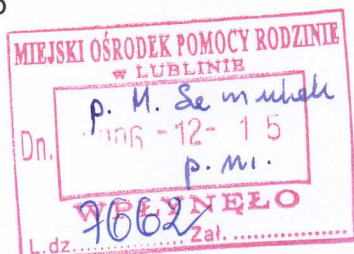 MIEJSKI OŚRODEK POMOCY RODZINIE
w LUBLINIE
p. M.
Dn. 2006 -12- 15
p. m.
WPŁYNĘŁO
L.dz. 7662 Zał.